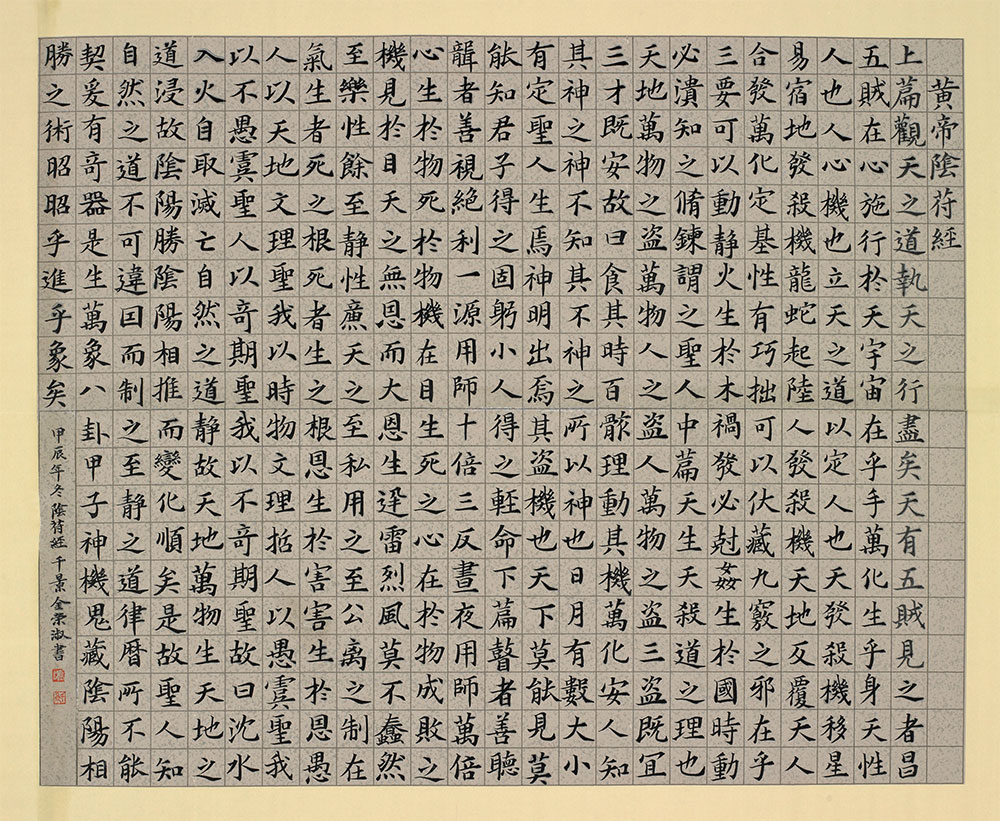 黃帝陰苻經
上篇觀天之道執天之行盡矣天有五賊見之者昌
五賊在心施行於天宇宙在乎手萬化生乎身天性
人也人心機也立天之道以定人也天發殺機移星
易宿地發殺機龍蛇起陸人發殺機天地反覆天人
合發萬化定基性有巧拙可以伏藏九竅之邪在乎
三要可以動靜火生於木禍發必尅姦生於國時動
必潰知之脩鍊謂之聖人中篇天生天殺道之理也
天地萬物之盜萬物人之盜人萬物之盜三盜既宜
三才既安故曰食其時百骸理動其機萬化安人知
其神之神不知其不神之所以神也日月有數大小
有定聖人生焉神明出焉其盜機也天下莫能見莫
能知君子得之固躬小人得之輕命下篇瞽者善聽
聾者善視絕利一源用師十倍三反晝夜用師萬倍
心生於物死於物機在目生死之心在於物成敗之
機見於目天之無恩而大恩生迅雷烈風莫不蠢然
至樂性餘至靜性廉天之至私用之至公禽之制在
氣生者死之根死者生之根恩生於害害生於恩愚
人以天地文理聖我以時物文理哲人以愚虞聖我
以不愚虞聖人以奇期聖我以不奇期聖故曰沈水
入火自取滅亡自然之道靜故天地萬物生天地之
道浸故陰陽勝陰陽相推而變化順矣是故聖人知
自然之道不可違因而制之至靜之道律曆所不能
契爰有奇器是生萬象八卦甲子神機鬼藏陰陽相
勝之術昭昭乎進乎象矣
甲辰年冬陰符經 千景金榮淑書